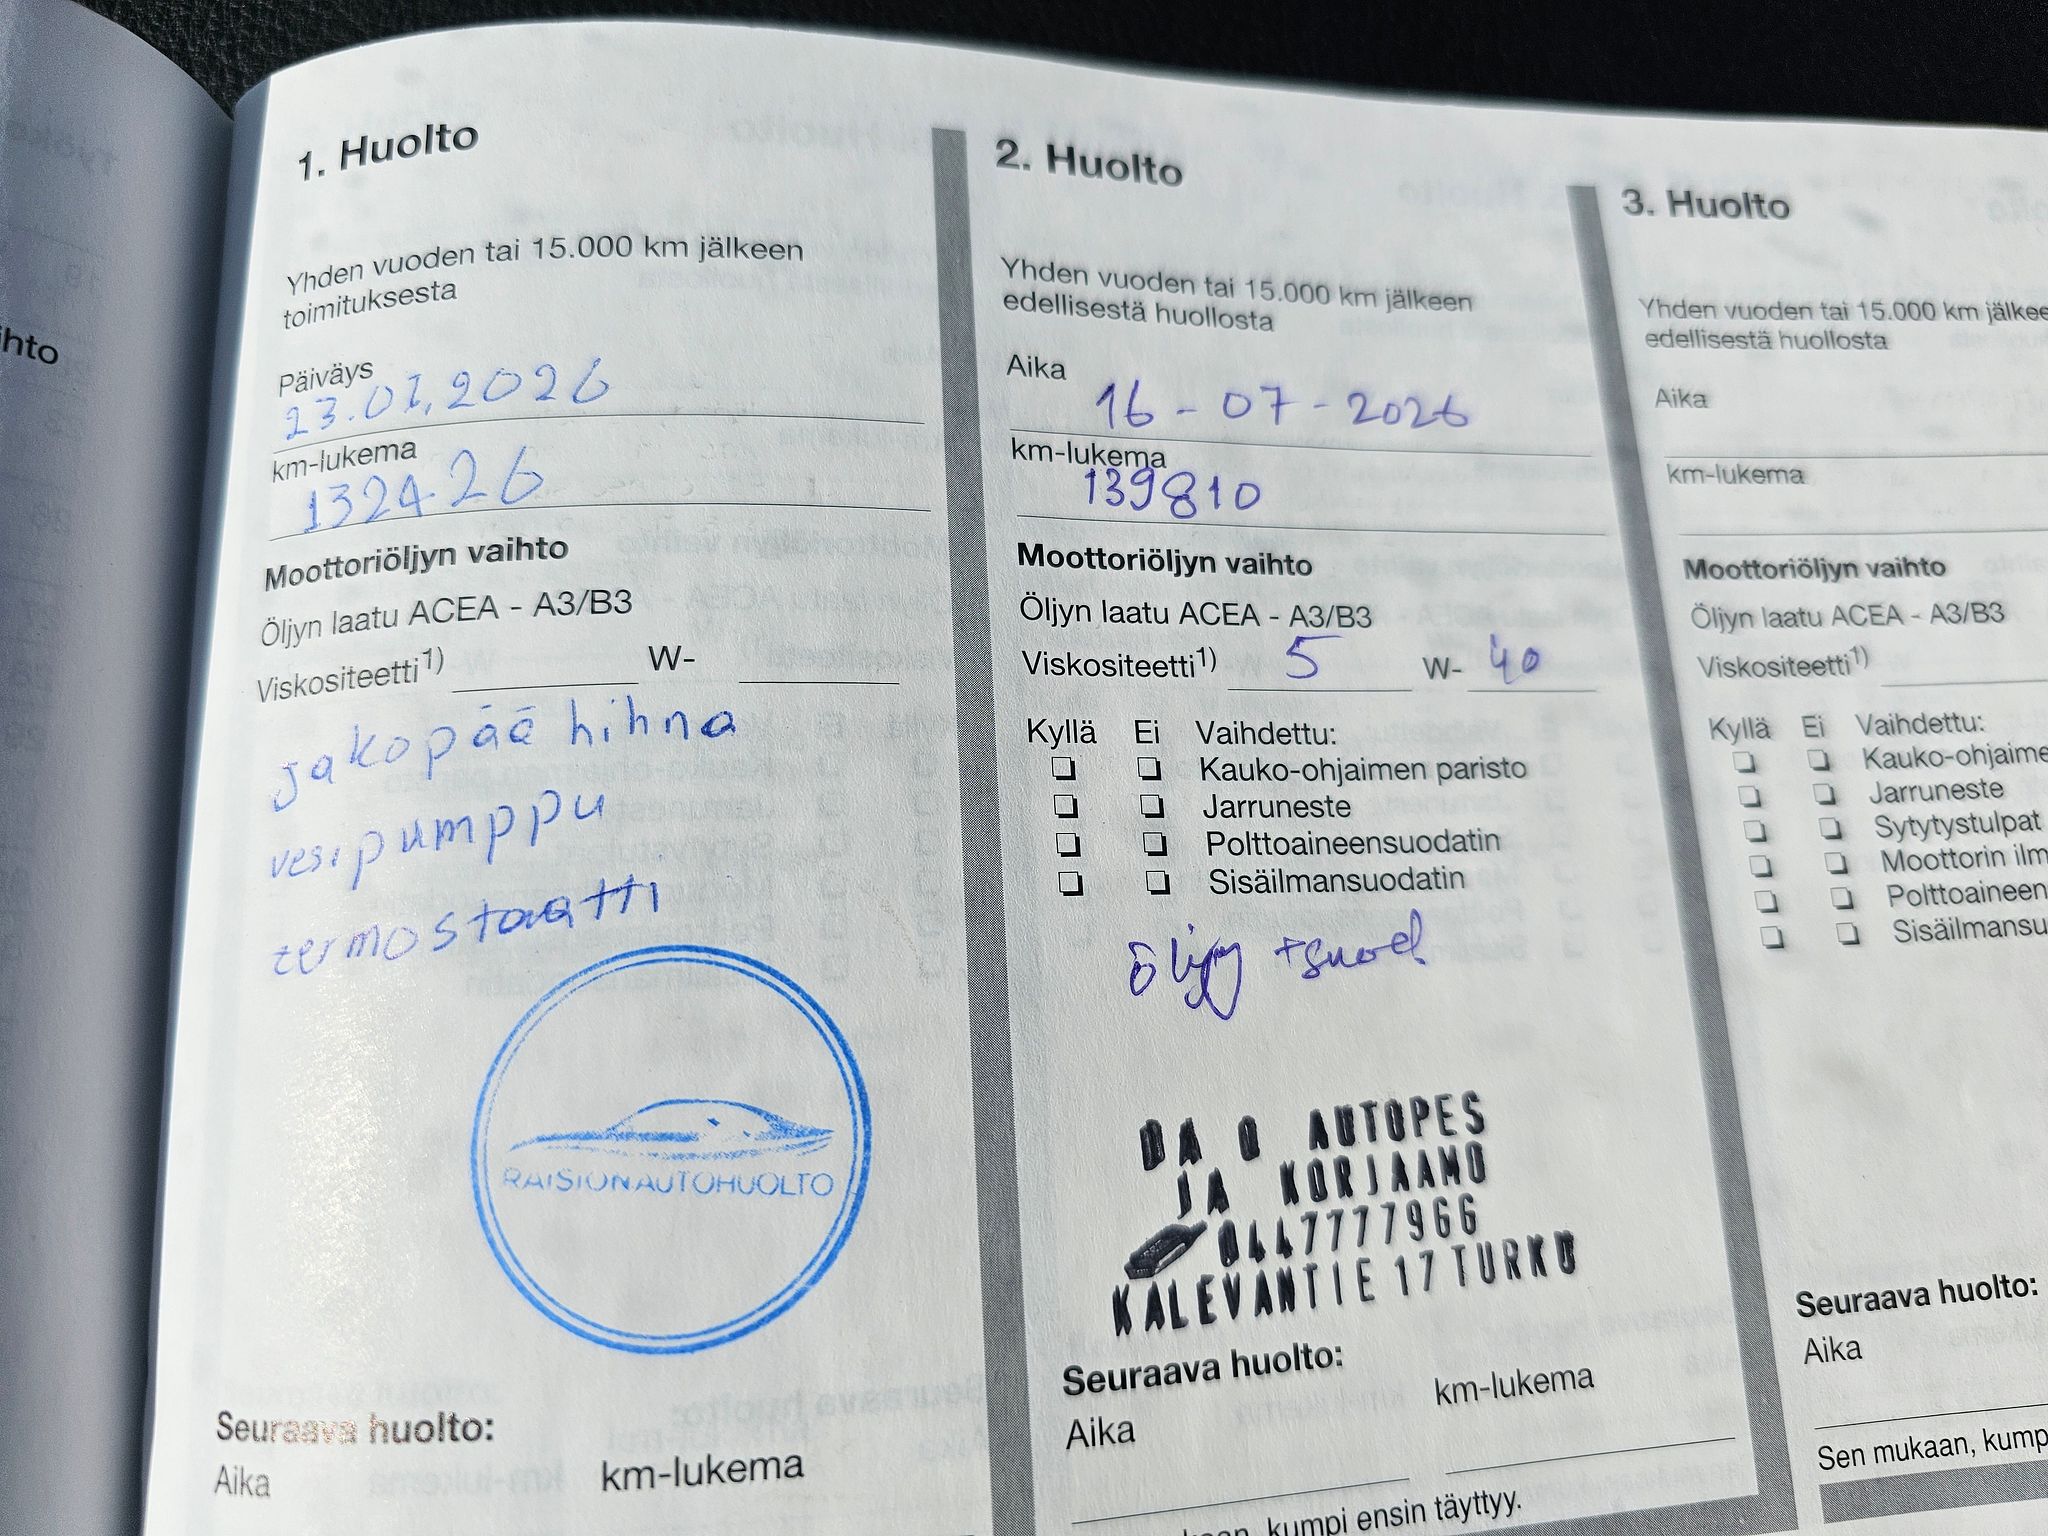 ihto
1. Huolto
Yhden vuoden tai 15.000 km jälkeen
toimituksesta
Päiväys
23.01.2026
km-lukema
132426
Moottoriöljyn vaihto
Öljyn laatu ACEA - A3/B3
Viskositeetti1) W-
jakopää hihna
vesipumppu
termostaatti
RAISIONAUTOHUOLTO
Seuraava huolto:
Aika km-lukema
2. Huolto
Yhden vuoden tai 15.000 km jälkeen
edellisestä huollosta
Aika
16-07-2026
km-lukema
139810
Moottoriöljyn vaihto
Öljyn laatu ACEA - A3/B3
Viskositeetti1) 5 W- 40
Kyllä Ei Vaihdettu:
Kauko-ohjaimen paristo
Jarruneste
Polttoaineensuodatin
Sisäilmansuodatin
öljy +suod
DA O AUTOPES
JA KORJAAMO
0447777966
KALEVANTIE 17 TURKU
Seuraava huolto:
Aika km-lukema
kumpi ensin täyttyy.
3. Huolto
Yhden vuoden tai 15.000 km jälkee
edellisestä huollosta
Aika
km-lukema
Moottoriöljyn vaihto
Öljyn laatu ACEA - A3/B3
Viskositeetti1)
Kyllä Ei Vaihdettu:
Kauko-ohjaime
Jarruneste
Sytytystulpat
Moottorin ilm
Polttoaineen
Sisäilmansu
Seuraava huolto:
Aika
Sen mukaan, kump